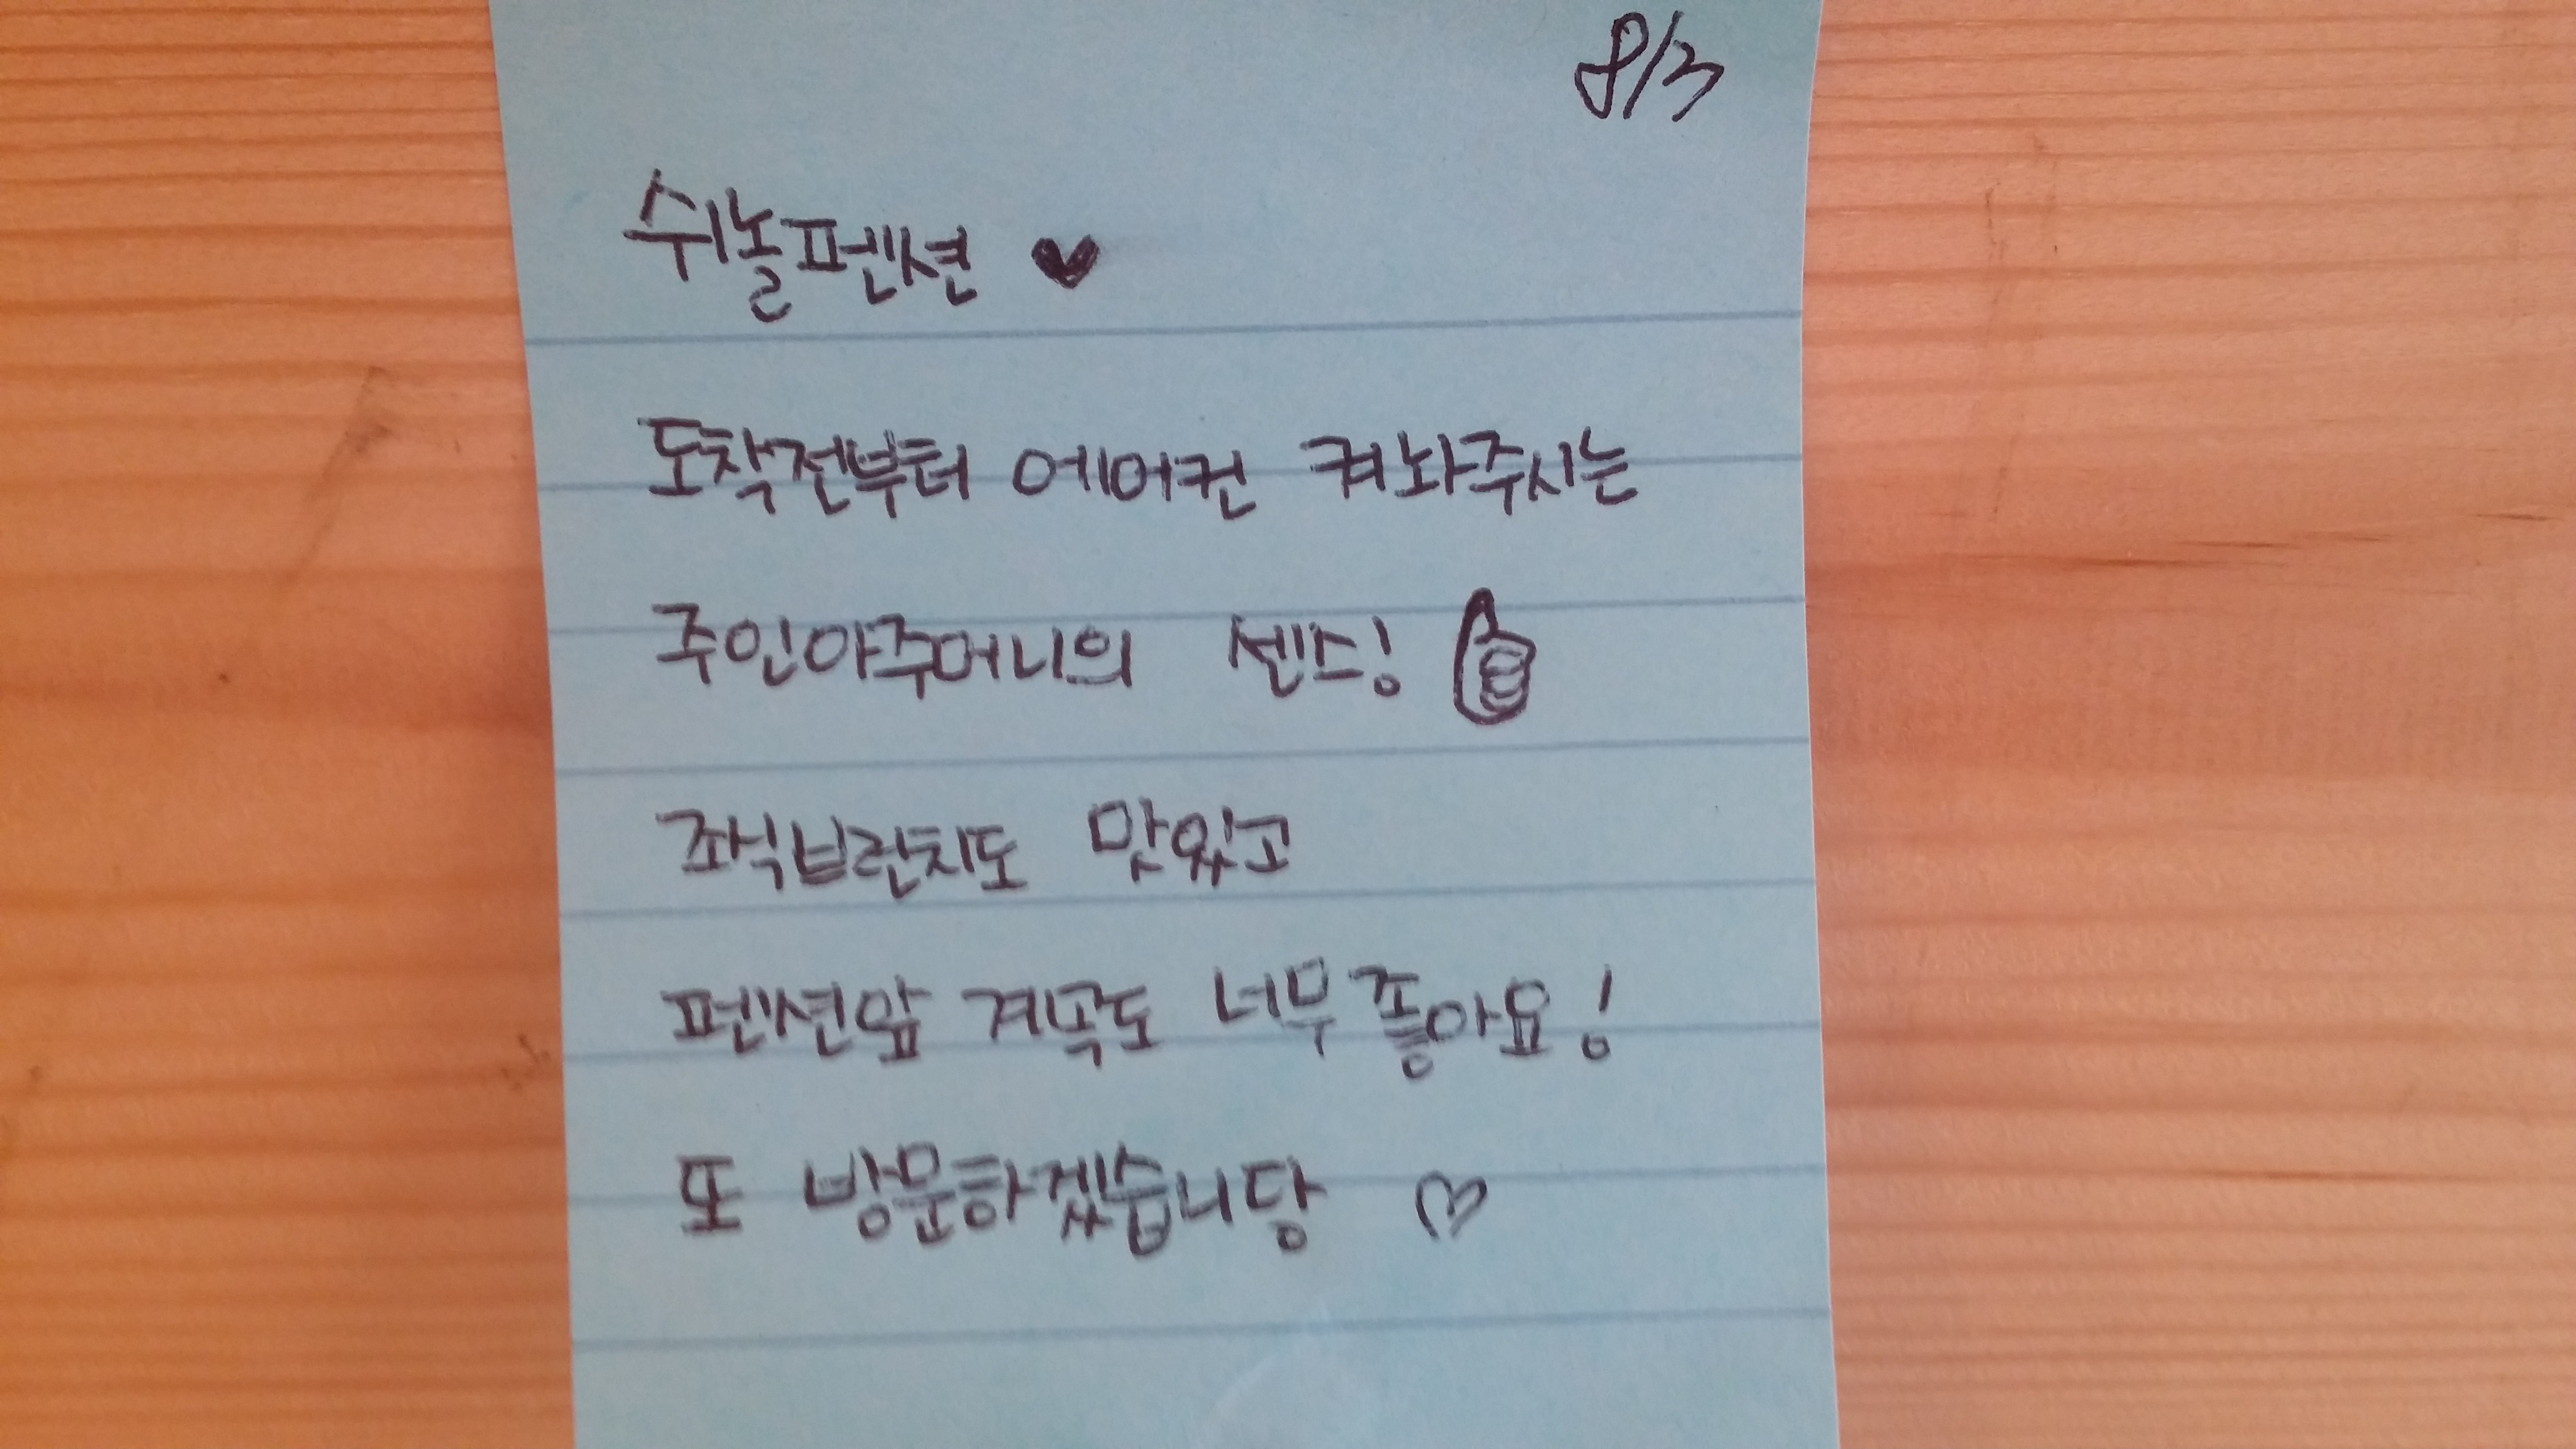 8/3
쉬놀펜션 ♥
도착전부터 에어컨 켜놔주시는
주인아주머니의 센스! 👍
조식브런치도 맛있고
펜션앞 계곡도 너무 좋아요!
또 방문하겠습니당 ♡